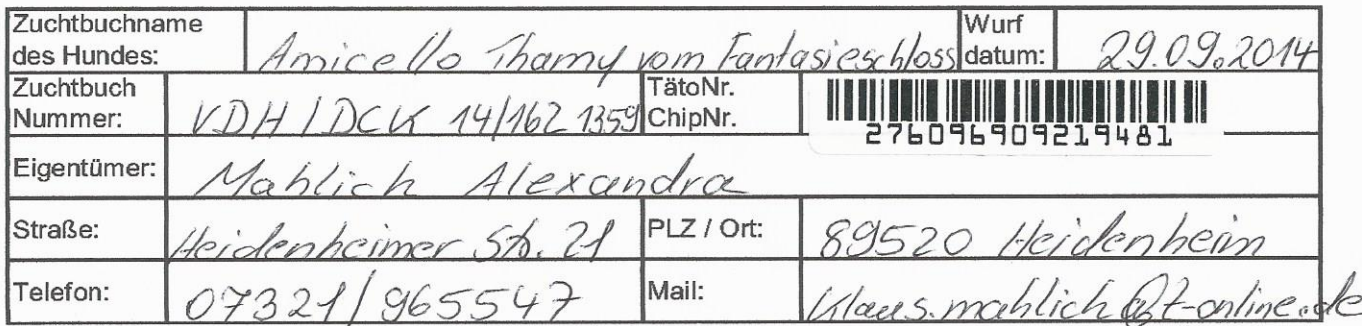 Zuchtbuchname des Hundes: Amicello Thamy vom Fantasieschloss Wurf datum: 29.09.2014
Zuchtbuch Nummer: VDH / DCK 14/162 1359 TätoNr. ChipNr. 276096909219481
Eigentümer: Mahlich Alexandra
Straße: Heidenheimer Str. 21 PLZ / Ort: 89520 Heidenheim
Telefon: 07321/965547 Mail: Klaus.mahlich@t-online.de